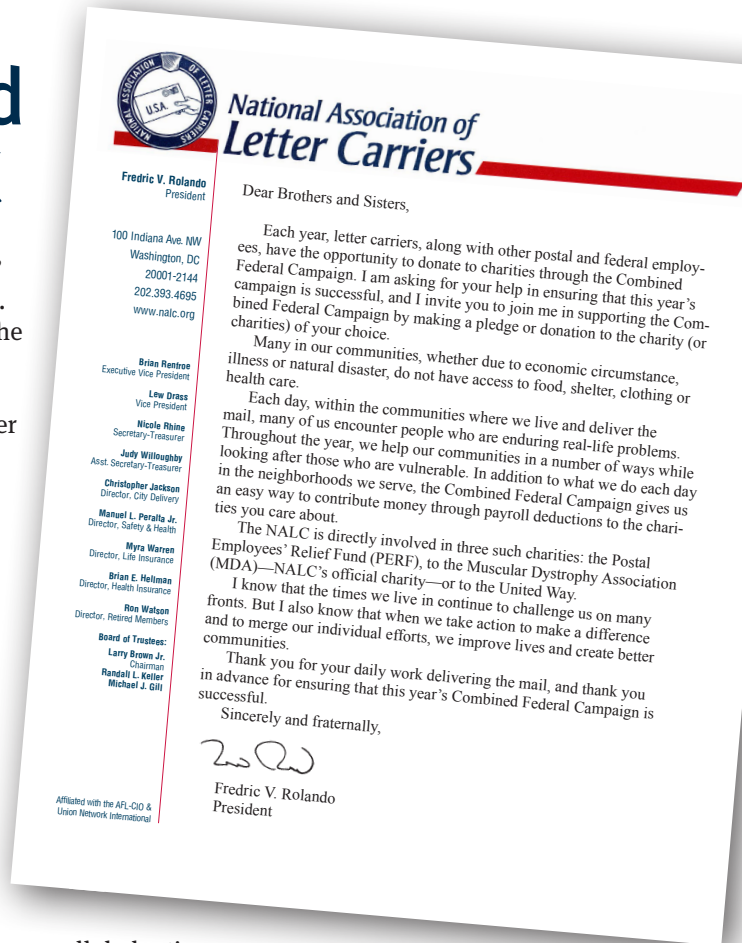 d
he
er
NATIONAL ASSOCIATION OF LETTER CARRIERS
U.S.A.
National Association of
Letter Carriers
Fredric V. Rolando
President
100 Indiana Ave. NW
Washington, DC
20001-2144
202.393.4695
www.nalc.org
Brian Renfroe
Executive Vice President
Lew Drass
Vice President
Nicole Rhine
Secretary-Treasurer
Judy Willoughby
Asst. Secretary-Treasurer
Christopher Jackson
Director, City Delivery
Manuel L. Peralta Jr.
Director, Safety & Health
Myra Warren
Director, Life Insurance
Brian E. Hellman
Director, Health Insurance
Ron Watson
Director, Retired Members
Board of Trustees:
Larry Brown Jr.
Chairman
Randall L. Keller
Michael J. Gill
Affiliated with the AFL-CIO &
Union Network International
Dear Brothers and Sisters,
Each year, letter carriers, along with other postal and federal employ-
ees, have the opportunity to donate to charities through the Combined
Federal Campaign. I am asking for your help in ensuring that this year's
campaign is successful, and I invite you to join me in supporting the Com-
bined Federal Campaign by making a pledge or donation to the charity (or
charities) of your choice.
Many in our communities, whether due to economic circumstance,
illness or natural disaster, do not have access to food, shelter, clothing or
health care.
Each day, within the communities where we live and deliver the
mail, many of us encounter people who are enduring real-life problems.
Throughout the year, we help our communities in a number of ways while
looking after those who are vulnerable. In addition to what we do each day
in the neighborhoods we serve, the Combined Federal Campaign gives us
an easy way to contribute money through payroll deductions to the chari-
ties you care about.
The NALC is directly involved in three such charities: the Postal
Employees' Relief Fund (PERF), to the Muscular Dystrophy Association
(MDA)—NALC's official charity—or to the United Way.
I know that the times we live in continue to challenge us on many
fronts. But I also know that when we take action to make a difference
and to merge our individual efforts, we improve lives and create better
communities.
Thank you for your daily work delivering the mail, and thank you
in advance for ensuring that this year's Combined Federal Campaign is
successful.
Sincerely and fraternally,
Fredric V. Rolando
President